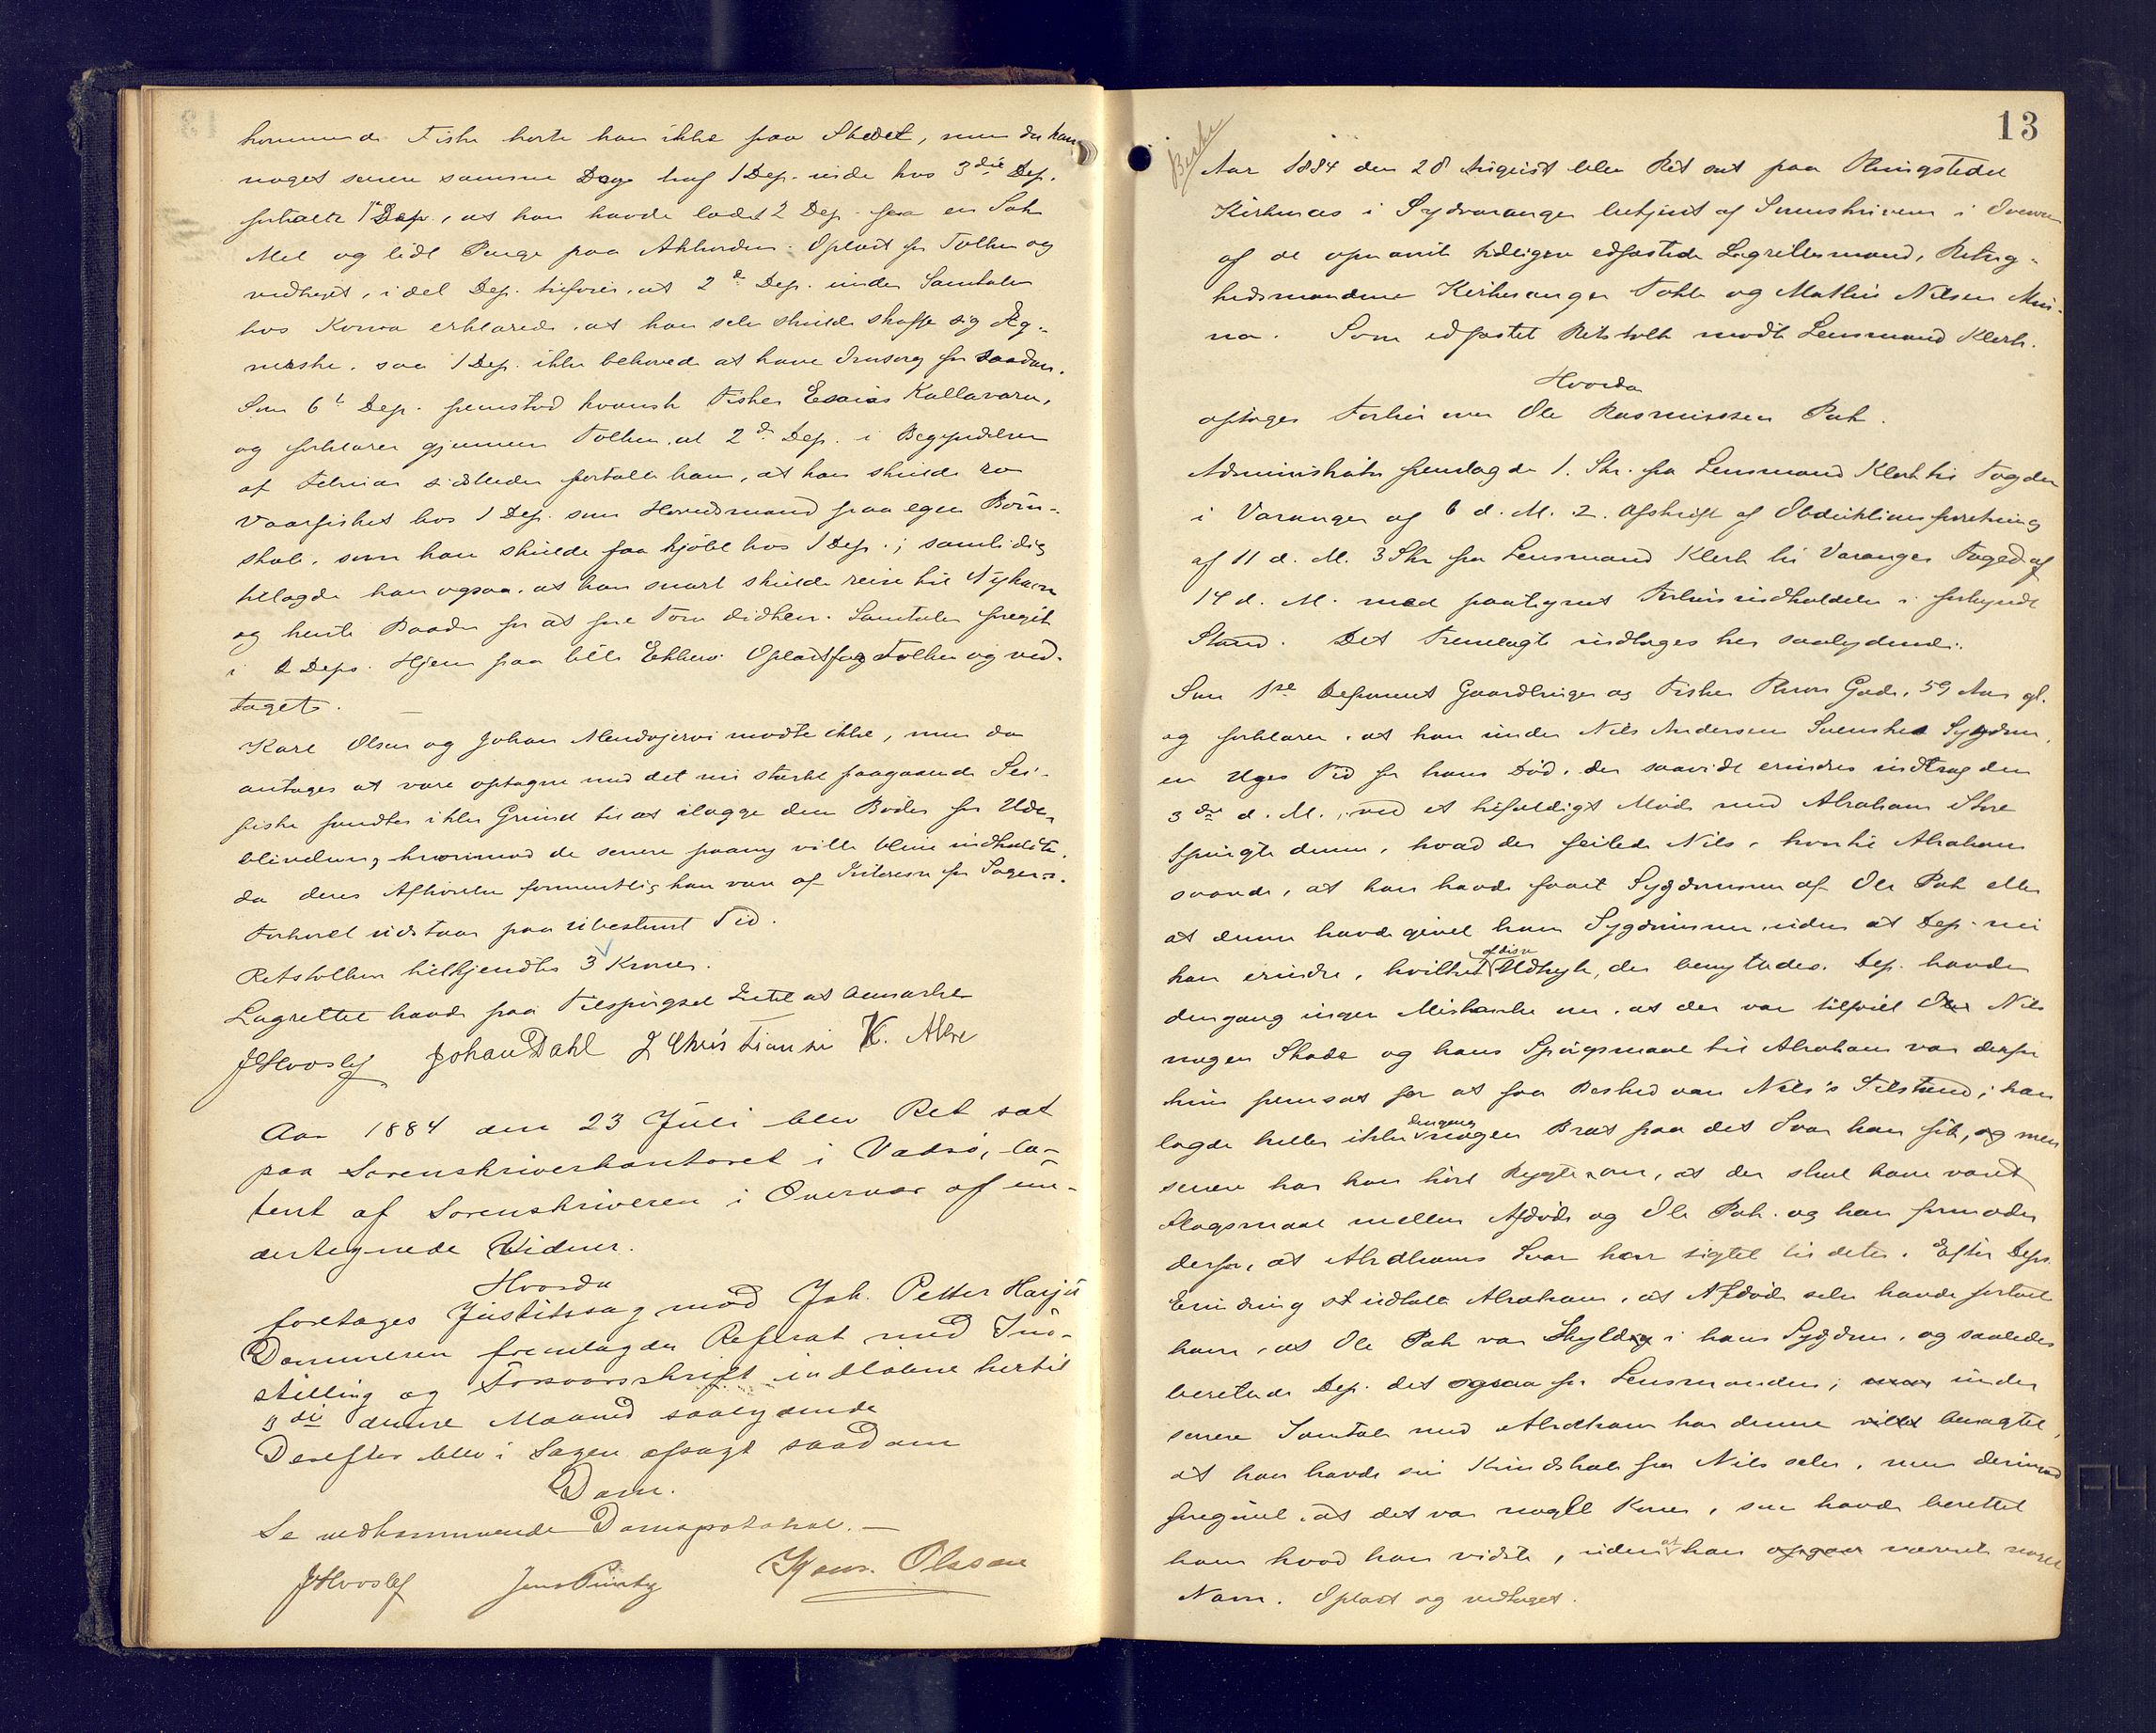 kommende Fiske hørte han ikke paa Stedet, men da han
noget senere samme Dage traf 1 Dep. inde hos 3die Dep.
fortalte 1ste Dep., at han havde ladet 2 Dep. faa en Sæk
Mel og lidt Penge paa Akkorden. Oplæst for Tolken og
vedtaget, idet Dep. tilføier, at 2d Dep. under Samtalen
hos Korva erklærede, at han selv skulde skaffe sig Æg-
nerske, saa 1 Dep. ikke behøvede at have Omsorg for saadan.
Som 6t Dep. fremstod kvænsk Fisker Esaias Kallavara,
og forklarer gjennem Tolken, at 2d Dep. i Begyndelsen
af Februar sidstleden fortalte ham, at han skulde ro
Vaarfisket hos 1 Dep. som Høvedsmand paa egen Børn-
skab, som han skulde faa kjøbt hos 1 Dep.; samtidig
tilagde han ogsaa, at han snart skulde reise til Nyhavn
og hente Baaden for at føre den didhen. Samtalen foregik
i 2 Deps. Hjem paa lille Ekkerø. Oplæst for Tolken og ved-
taget. —
Karl Olsen og Johan Alendojervi mødte ikke, men da
antages at være optagne med det nu stærkt paagaaende Sei-
fiske fandtes ikke Grund til at ilægge dem Bøder for Ude-
blivelsen, hvorimod de senere paany ville blive indkaldte,
da deres Afhørelse formentlig kan være af Interesse for Sagen.
Forhøret udstaar paa ubestemt Tid.
Retstolken tilkjendtes 3 Kroner.
Lagrettet havde paa Tilspørgsel Intet at bemærke
JHvoslef Johan Dahl J Christiansen K. Akre
Aar 1884 den 23 Juli blev Ret sat
paa Sorenskriverkontoret i Vadsø, be-
tjent af Sorenskriveren i Overvær af un-
dertegnede Vidner.
Hvorda
foretages Justitssag mod Joh. Petter Harju
Dommeren fremlagde Referat med Ind-
stilling og Forsvarsskrift indkomne hertil
9de denne Maaned saalydende
Derefter blev i Sagen afsagt saadan
Dom.
Se vedkommende Domsprotokol. —
JHvoslef Jens Hans. Olssen
13
Aar 1884 den 28 August blev Ret sat paa Thingstedet
Kirkenæs i Sydvaranger betjent af Sorenskriveren i Overvær
af de opnævnte tidligere edfæstede Lagrettesmænd, Retug-
hedsmændene Kirkevanger Tohle og Mathis Nilsen Mun-
na. Som edfæstet Retstolk mødte Lensmand Klerk.
Hvorda
optages Forhør over Ole Rasmussen Pak.
Administrator fremlagde 1. Skr. fra Lensmand Klerk til Fogden
i Varanger af 6 d. M. 2. Afskrift af Obduktionsforretning
af 11 d. M. 3 Skr fra Lensmand Klerk til Varanger Foged af
14 d. M. med paategnet Forhørsindkaldelse i forkyndt
Stand. Det Fremlagte indtages her saalydende:
Som 1ste Deponent Gaardbruger og Fisker Gade, 59 Aar gl.
og forklarer, at han under Nils Andersen Svenskes Sygdom,
en Uges Tid før hans Død, der saavidt erindres indtraf den
3die d. M., ved et tilfældigt Møde med Abraham Store
spurgte denne, hvad der feilede Nils, hvortil Abraham
svarede, at han havde faaet Sygdommen af Ole Pak eller
at denne havde givet ham Sygdommen, uden at Dep. nu
kan erindre, hvilket af disse Udtryk, der benyttedes. Dep. havde
dengang ingen Mistanke om, at der var tilføiet Nils
nogen Skade og hans Spørgsmaal til Abraham var derfor
kun fremsat for at faa Besked om Nils's Tilstand; han
lagde heller ikke dengang nogen Bræt paa det Svar han fik, men
senere har han hørt Rygter om, at der skal have været
Slagsmaal mellem Afdøde og Ole Pak. og han formoder
derfor, at Abrahams Svar har sigtet til dette. Efter Deps.
Erindring udtalte Abraham, at Afdøde selv havde fortalt
ham, at Ole Pak var Skyld i hans Sygdom, og saaledes
berettede Dep. det ogsaa for Lensmanden; under
senere Samtale med Abraham har denne benægtet,
at han havde sin Kundskab fra Nils selv, men derimod
foregivet, at det var nogle Koner, som havde berettet
ham hvad han vidste, uden at han nævnte noget
Navn. Oplæst og vedtaget.